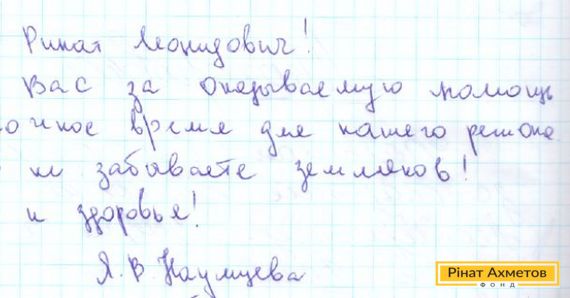 Ринат Леонидович!
Вас за оказываемую помощь
очное время для нашего региона
не забываете земляков!
и здоровья!
Я.В. Наумцева
Рінат Ахметов
ФОНД